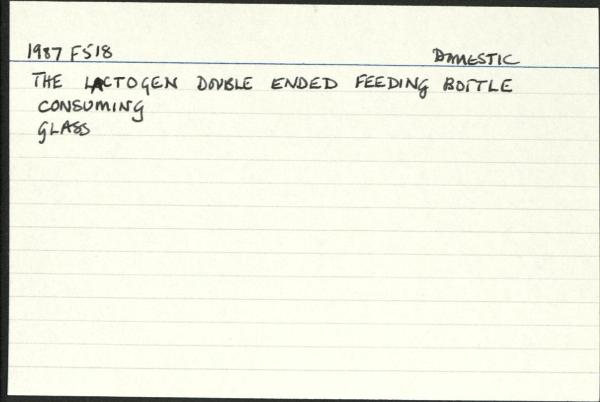 1987 F518 DOMESTIC
THE LACTOGEN DOUBLE ENDED FEEDING BOTTLE
CONSUMING
GLASS